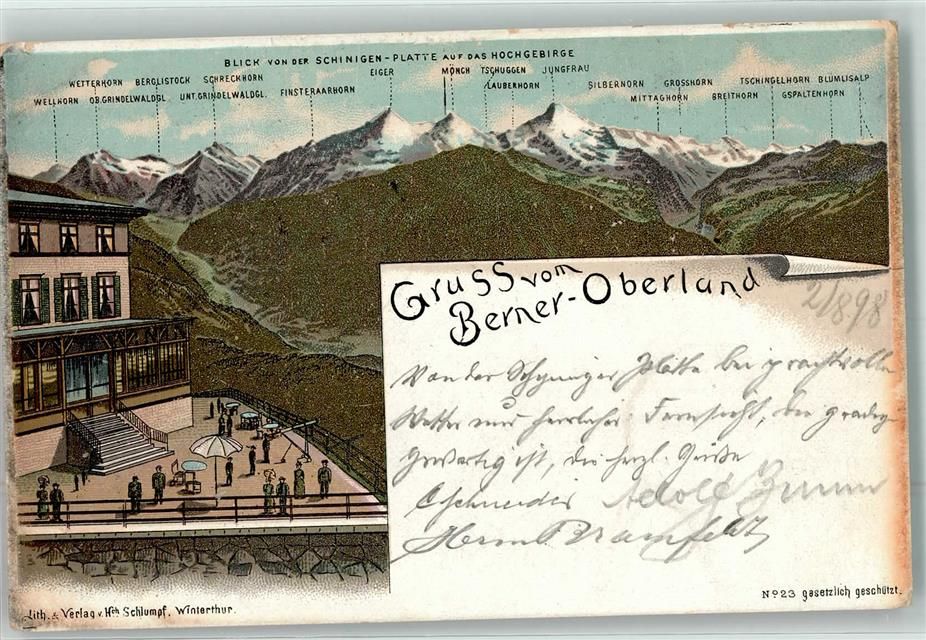 BLICK VON DER SCHINIGEN-PLATTE AUF DAS HOCHGEBIRGE
WETTERHORN BERGLISTOCK SCHRECKHORN EIGER MÖNCH TSCHUGGEN JUNGFRAU
WELLHORN OB.GRINDELWALDGL. UNT.GRINDELWALDGL. FINSTERAARHORN LAUBERHORN SILBERNORN GROSHORN TSCHINGELHORN BLÜMLISALP
MITTAGHORN BREITHORN GSPALTENHORN
Gruss vom
Berner-Oberland
2/8 98
Von der Schyniger Platte bei prachtvolle
Wetter und herrlicher Fernsicht, die
ist, die herzl. Grüße
Adolf
Herm. Bramfeldt
Lith. & Verlag v. Hch Schlumpf, Winterthur.
No 23 gesetzlich geschützt.